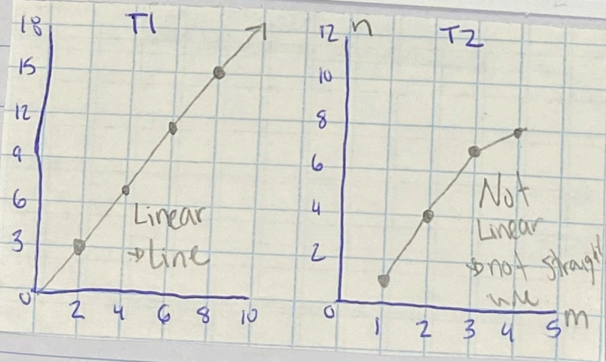 T1
18
15
12
9
6
3
0
2 4 6 8 10
Linear
→Line
T2
n
12
10
8
6
4
2
0
1 2 3 4 5 m
Not
Linear
→not straight